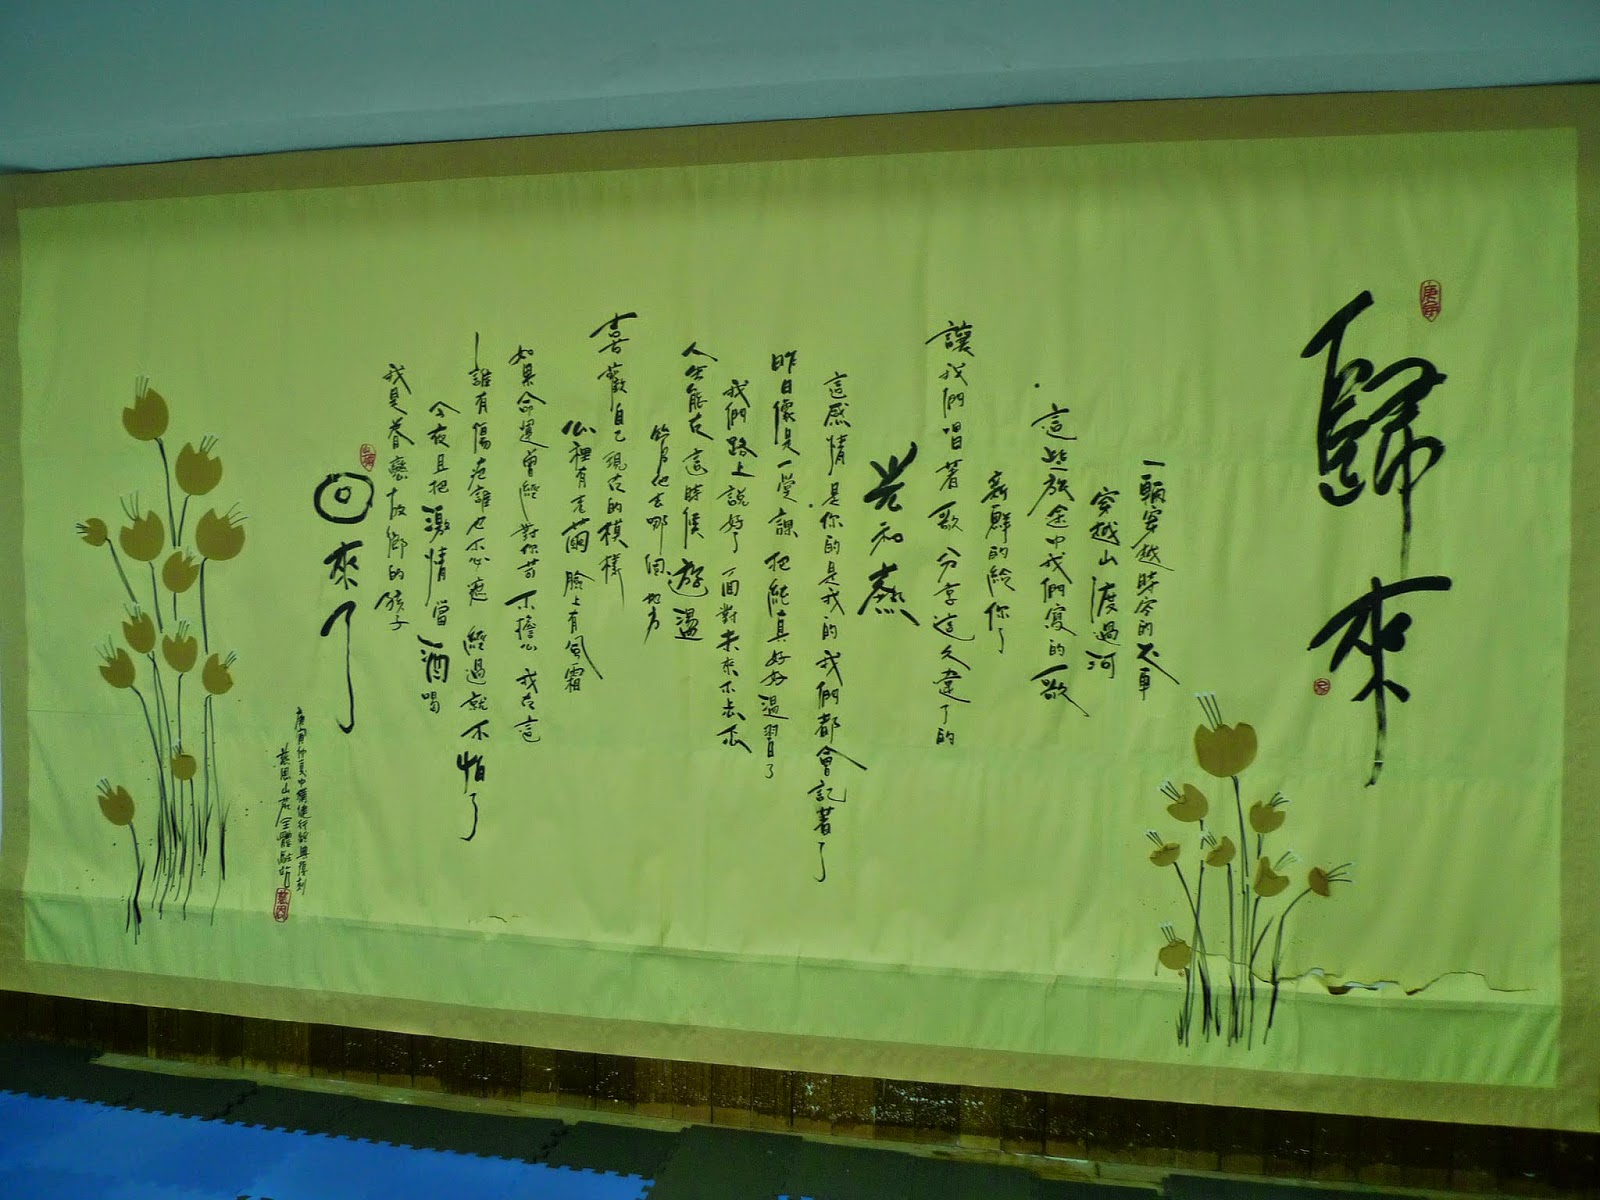 歸來
庚寅
一輛穿越時空的火車
穿越山渡過河
這些旅途中我們寫的歌
新鮮的給你了
讓我們唱著歌 分享這久違了的
光和熱
這感情是你的是我的我們都會記著了
昨日像是一堂課 把純真好好溫習了
我們路上說好了 面對未來不去瓜
人生能在這時候 遊盪
管他去哪個地方
喜歡自己現在的模樣
心裡有老繭 臉上有風霜
如果命運曾經對你苛 不擔心 我在這
誰有傷疤誰也不必遮 經過就不怕了
今夜且把激情當酒喝
我是眷戀故鄉的孩子
回來了
庚寅仲夏中橫健行
慈恩山莊全體敬贈